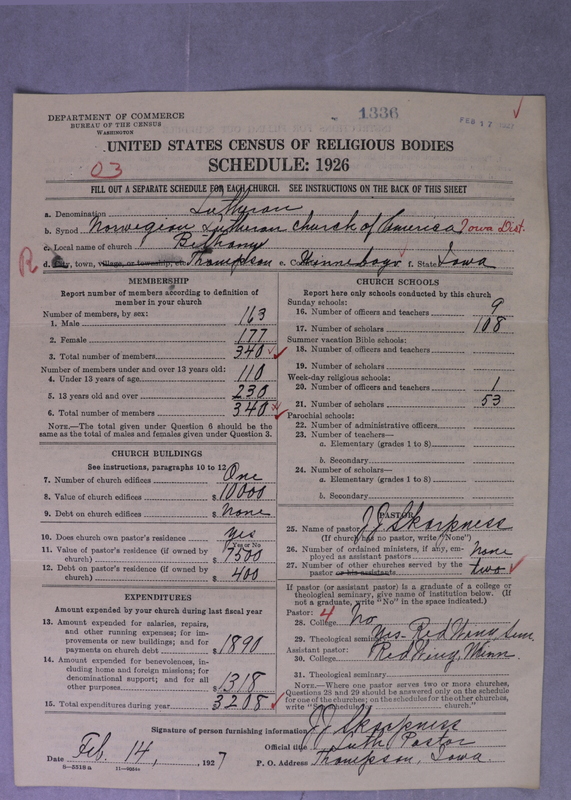 DEPARTMENT OF COMMERCE
BUREAU OF THE CENSUS
WASHINGTON
1336
FEB 17 1927
UNITED STATES CENSUS OF RELIGIOUS BODIES
03
SCHEDULE: 1926
FILL OUT A SEPARATE SCHEDULE FOR EACH CHURCH. SEE INSTRUCTIONS ON THE BACK OF THIS SHEET
a. Denomination Lutheran
b. Synod Norwegian Lutheran Church of America Iowa Dist.
c. Local name of church Bethany
R d. City, town, village, or township, etc. Thompson e. Co. Winnebago f. State Iowa
MEMBERSHIP
Report number of members according to definition of
member in your church
Number of members, by sex:
1. Male 163
2. Female 177
3. Total number of members 340
Number of members under and over 13 years old:
4. Under 13 years of age 110
5. 13 years old and over 230
6. Total number of members 340
NOTE.—The total given under Question 6 should be the
same as the total of males and females given under Question 3.
CHURCH BUILDINGS
See instructions, paragraphs 10 to 12
7. Number of church edifices One
8. Value of church edifices $10000
9. Debt on church edifices $ None
10. Does church own pastor's residence yes
Yes or No
11. Value of pastor's residence (if owned by
church) $7500
12. Debt on pastor's residence (if owned by
church) $400
EXPENDITURES
Amount expended by your church during last fiscal year
13. Amount expended for salaries, repairs,
and other running expenses; for im-
provements or new buildings; and for
payments on church debt $1890
14. Amount expended for benevolences, in-
cluding home and foreign missions; for
denominational support; and for all
other purposes $1318
15. Total expenditures during year $3208
CHURCH SCHOOLS
Report here only schools conducted by this church
Sunday schools:
16. Number of officers and teachers 9
17. Number of scholars 108
Summer vacation Bible schools:
18. Number of officers and teachers
19. Number of scholars
Week-day religious schools:
20. Number of officers and teachers 1
21. Number of scholars 53
Parochial schools:
22. Number of administrative officers
23. Number of teachers—
a. Elementary (grades 1 to 8)
b. Secondary
24. Number of scholars—
a. Elementary (grades 1 to 8)
b. Secondary
PASTOR
25. Name of pastor J J Skarpness
(If church has no pastor, write "None")
26. Number of ordained ministers, if any, em-
ployed as assistant pastors None
27. Number of other churches served by the
pastor or his assistants two
If pastor (or assistant pastor) is a graduate of a college or
theological seminary, give name of institution below. (If
not a graduate, write "No" in the space indicated.)
Pastor: 4
28. College No
29. Theological seminary Yes Red Wing Sem.
Assistant pastor: Red Wing, Minn.
30. College
31. Theological seminary
NOTE.—Where one pastor serves two or more churches,
Questions 28 and 29 should be answered only on the schedule
for one of the churches; on the schedules for the other churches,
write "See schedule church."
Signature of person furnishing information J J Skarpness
Official title Luth Pastor
Date Feb. 14, 1927 P. O. Address Thompson, Iowa
8—5518a